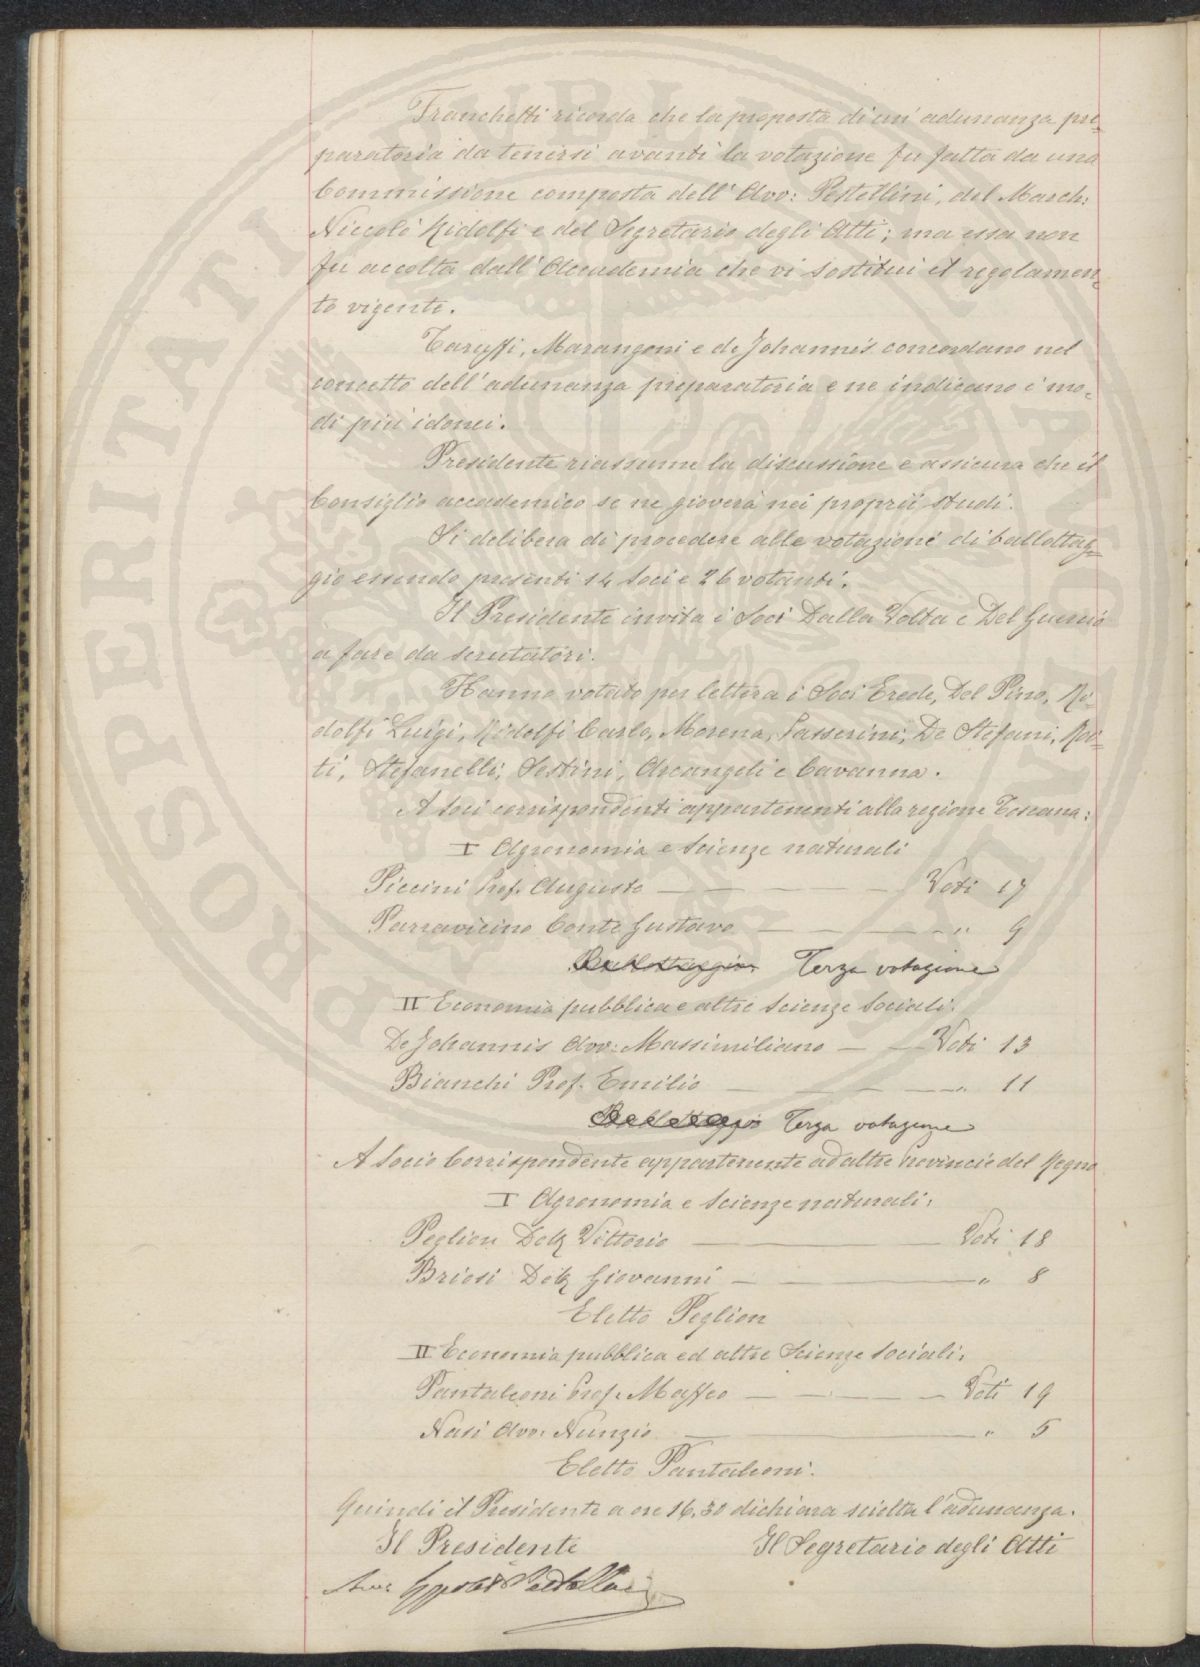 Franchetti ricorda che la proposta di un' adunanza pre-
paratoria da tenersi avanti la votazione fu fatta da una
Commissione composta dell' Avv: Pestellini, del March:
Niccolò Ridolfi e del Segretario degli Atti; ma essa non
fu accolta dall' Accademia che vi sostituì il regolamen-
to vigente.
Taruffi, Marangoni e de Johannis concordano nel
concetto dell' adunanza preparatoria e ne indicano i mo-
di più idonei.
Presidente riassume la discussione e assicura che il
Consiglio accademico se ne gioverà nei proprii studi.
Si delibera di procedere alle votazioni di ballottag-
gio essendo presenti 14 Soci e 26 votanti.
Il Presidente invita i Soci Dalla Volta e Del Guercio
a fare da scrutatori.
Hanno votato per lettera i Soci Erede, Del Pino, Ri-
dolfi Luigi, Ridolfi Carlo, Morena, Passerini, De Stefani, Roi-
ti, Stefanelli, Sestini, Arcangeli e Cavanna.
A Soci corrispondenti appartenenti alla regione Toscana:
I Agronomia e Scienze naturali
Piccini Prof. Augusto — — — — Voti 17
Parravicino Conte Gustavo — — — — " 9
Ballottaggio Terza votazione
II Economia pubblica e altre Scienze Sociali.
De Johannis Avv: Massimiliano — — Voti 13
Bianchi Prof. Emilio — — — " 11
Ballottaggio Terza votazione
A Socio Corrispondente appartenente ad altre Provincie del Regno
I Agronomia e Scienze naturali:
Peglion Dott Vittorio — Voti 18
Briosi Dott Giovanni — — " 8
Eletto Peglion
II Economia pubblica ed altre Scienze Sociali.
Pantaleoni Prof. Maffeo — — — Voti 19
Nasi Avv: Nunzio — — " 5
Eletto Pantaleoni.
Quindi il Presidente a ore 16,30 dichiara sciolta l'adunanza.
Il Presidente Il Segretario degli Atti
PROSPERITATI PUBLICAE AUGENDAE